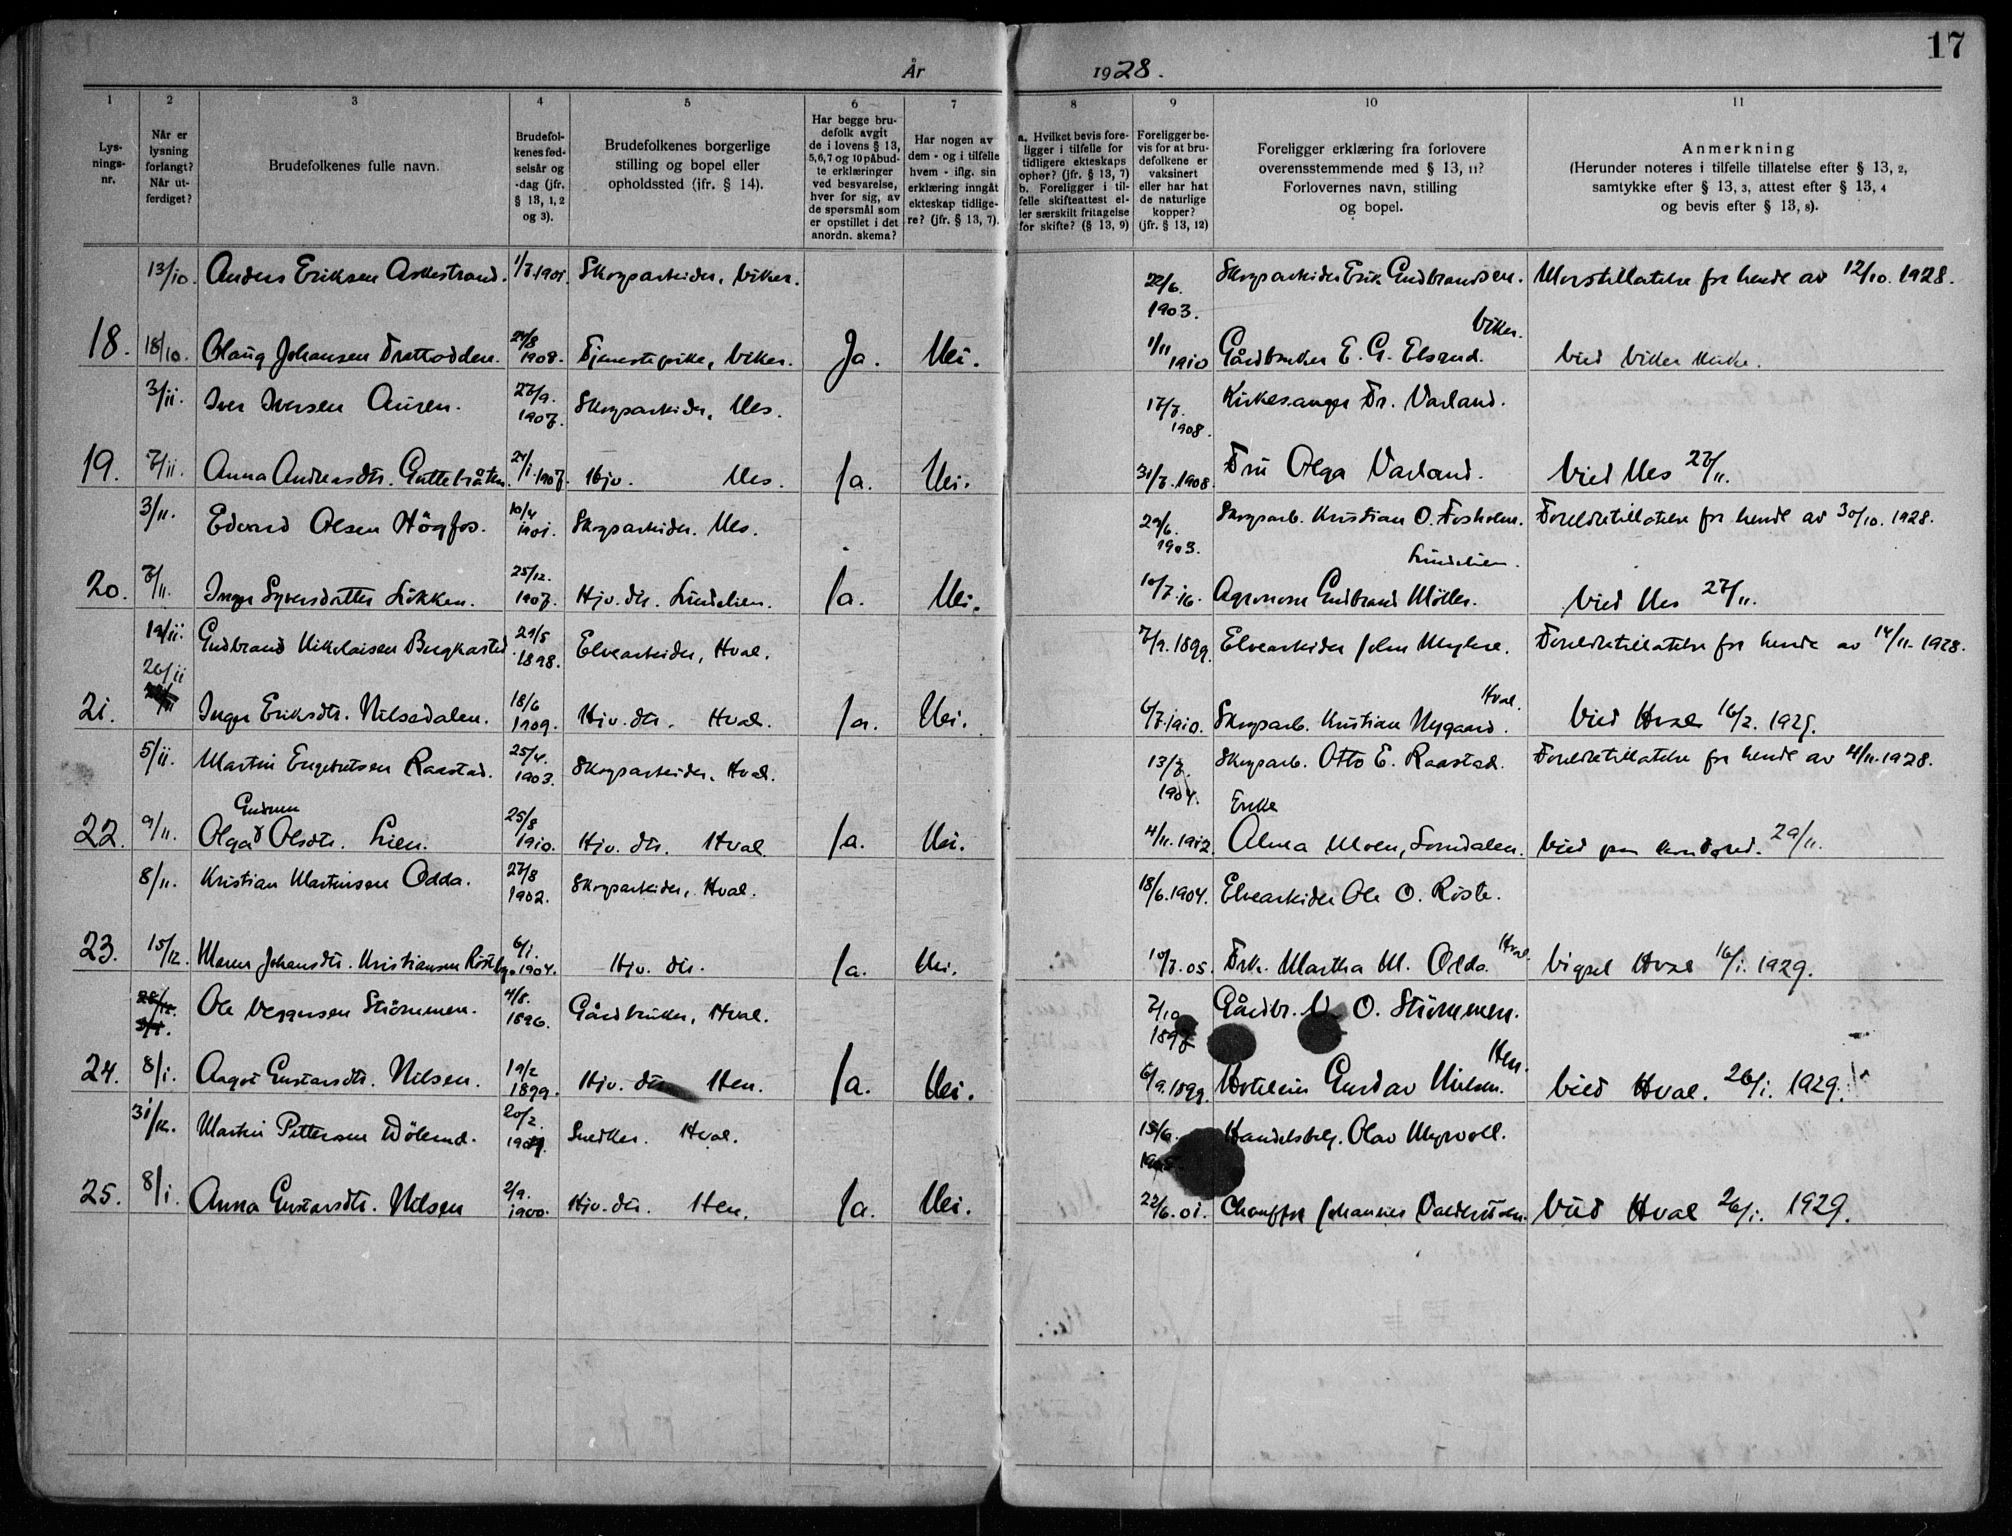 17
År 1928.
1 2 3 4 5 6 7 8 9 10 11
Lys-
nings-
nr.
Når er
lysning
forlangt?
Når ut-
ferdiget?
Brudefolkenes fulle navn.
Brudefol-
kenes fød-
selsår og
-dag (jfr.
§ 13, 1, 2
og 3).
Brudefolkenes borgerlige
stilling og bopel eller
opholdssted (jfr. § 14).
Har begge bru-
defolk avgit
de i lovens § 13,
5, 6, 7 og 10 påbud-
te erklæringer
ved besvarelse,
hver for sig, av
de spørsmål som
er opstillet i det
anordn. skema?
Har nogen av
dem - og i tilfelle
hvem - iflg. sin
erklæring inngåt
ekteskap tidlige-
re? (jfr. § 13, 7).
a. Hvilket bevis fore-
ligger i tilfelle for
tidligere ekteskaps
ophør? (jfr. § 13, 7)
b. Foreligger i til-
felle skifteattest el-
ler særskilt fritagelse
for skifte? (§ 13, 9)
Foreligger be-
vis for at bru-
defolkene er
vaksinert
eller har hat
de naturlige
kopper?
(jfr. § 13, 12)
Foreligger erklæring fra forlovere
overensstemmende med § 13, 11?
Forlovernes navn, stilling
og bopel.
Anmerkning
(Herunder noteres i tilfelle tillatelse efter § 13, 2,
samtykke efter § 13, 3, attest efter § 13, 4
og bevis efter § 13, 8).
13/10. Anders Eriksen Askestrand. 1/7.1901. Skogsarbeider, Viker. 22/6. 1903. Skogsarbeider Erik Gudbrandsen. Viker. Morstillatelse for hende av 12/10. 1928.
18. 18/10. Olaug Johansen Trattodden. 24/8 1908. Tjenestepike, Viker. Ja. Nei. 1/11 1910 Gårdbruker E. G. Elsrud. Vied Viker kirke.
3/11. Iver Iversen Auren. 27/9. 1907. Skogsarbeider, Nes. 17/7. 1908. Kirkesanger Fr. Varland.
19. 7/11. Anna Andreasdtr. Guttebråten. 24/1.1907. Hjv. Nes. Ja. Nei. 31/7.1908. Fru Olga Varland. Vied Nes 27/11.
3/11. Edvard Olsen Högfos. 10/4 1901. Skogsarbeider. Nes. 29/6. 1903. Skogsarb. Kristian O. Fosholm. Lindelien. Foreldretillatelse for hende av 30/10. 1928.
20. 7/11. Inga Syversdatter Lökken. 25/12. 1907. Hjv. dtr. Lindelien. Ja. Nei. 10/7.16. Agronom Gudbrand Möller. Vied Nes 27/11.
19/11. Gudbrand Nikolaisen Bergkasted. 29/5 1898. Elvearbeider, Hval. 7/9.1899. Elvearbeider John Myhre. Hval. Foreldretillatelse for hende av 14/11.1928.
21. 26/11 Inga Eriksdtr. Nilsedalen. 18/6 1909. Hjv. dtr. Hval. Ja. Nei. 6/7.1910. Skogsarb. Kristian Nygaard. Vied Hval 16/2. 1929.
5/11. Martin Engebretsen Raastad. 25/4. 1903. Skogsarbeider. Hval. 13/7. 1904. Skogsarb. Otto E. Raastad. Foreldretillatelse for hende av 4/11.1928.
22. 9/11. Olga Gudrun Olsdtr. Lien. 25/8 1910. Hjv. dtr. Hval. Ja. Nei. 4/11.1912. Enke Alma Moen, Somdalen. Vied 29/11.
8/11. Kristian Martinsen Odda. 27/8 1902. Skogsarbeider, Hval. 18/6.1904. Elvearbeider Ole O. Röste. Hval.
23. 15/12. Maren Johansdtr. Kristiansen 6/1. 1904. Hjv. dtr. Ja. Nei. 10/7.05. Frk. Martha M. Odda. Vigsel Hval 16/1. 1929.
Ole Veggersen Strömmen. 4/8. 1896. Gårdbruker, Hval. 7/10 1897 Gårdbr. O. Strömmen. Hen.
24. 8/1. Aagot Gustavsdtr. Nilsen. 19/2 1899. Hjv. dtr. Hen. Ja. Nei. 6/9.1899. Gustav Nielsen. Vied Hval. 26/1. 1929.
31/12. Martin Pettersen Dölerud. 20/2. Snedker. Hval. 15/6. Handelsbetj. Olav Myrvoll.
25. 8/1. Anna Gustavsdtr. Nilsen 2/9. 1900. Hjv. dtr. Hen. Ja. Nei. 22/6.01. Chauffør Johannes Vied Hval 26/1. 1929.